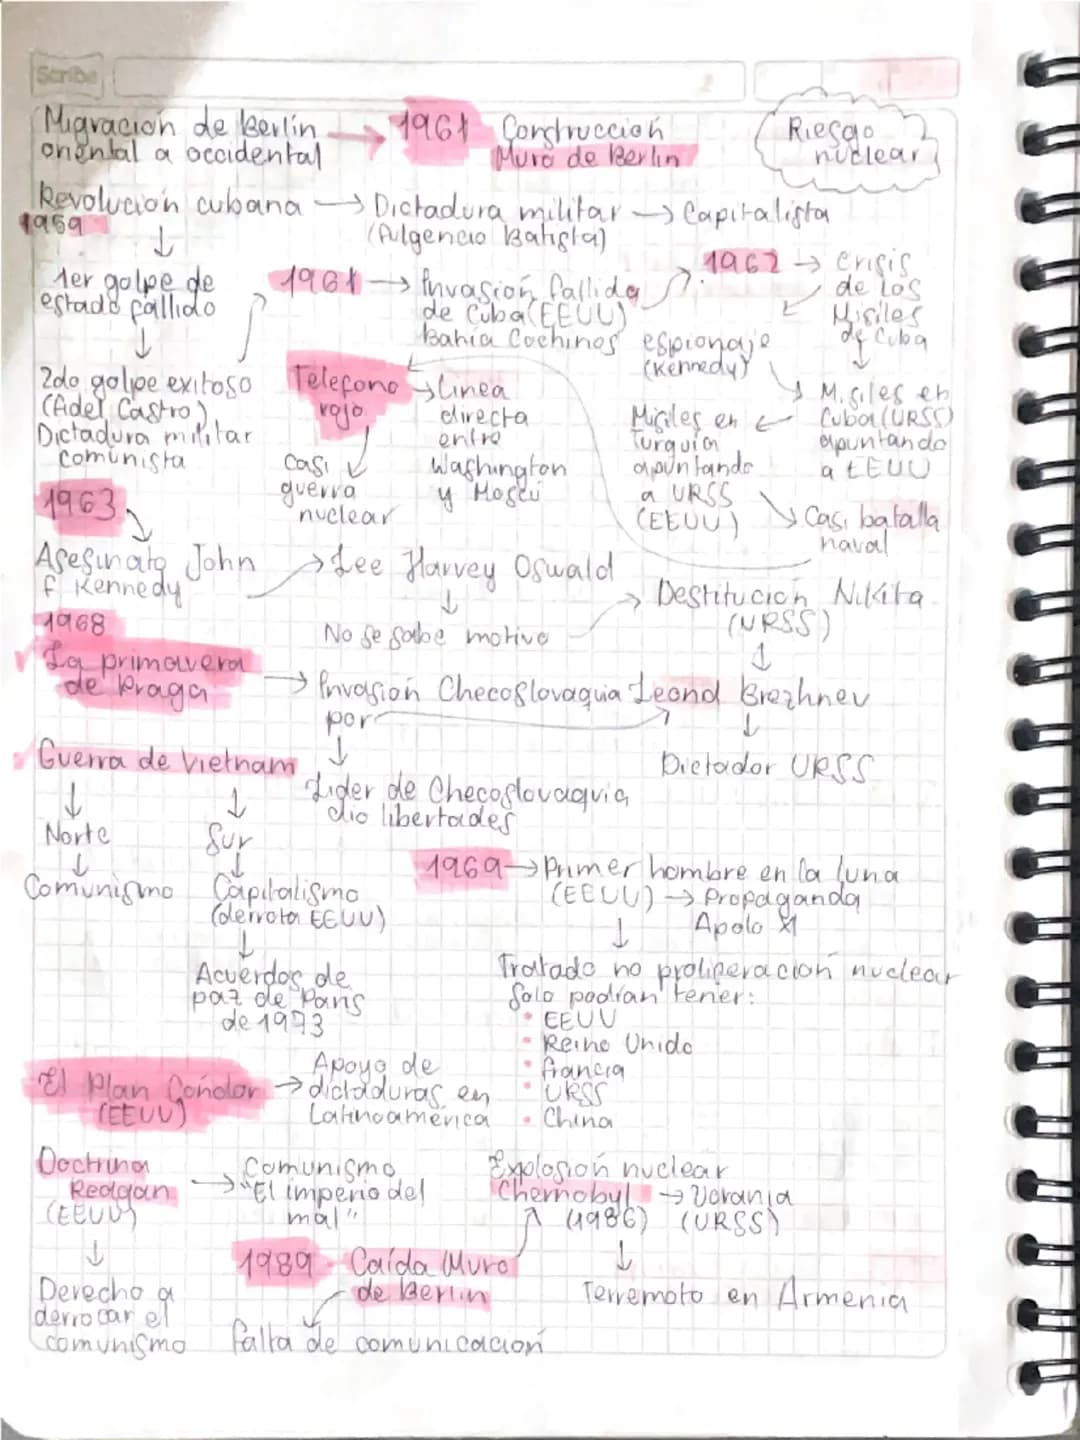 Scribe
Migración de Berlín
oriental a occidental
→ 1961 Construcción
Muro de Berlin
Riesgo
nuclear
Revolución cubana → Dictadura militar → Capitalista
1959
(Fulgencio Batista)
1er golpe de
estado fallido
1961 → Invasión fallida
de Cuba (EEUU)
Bahía Cochinos
1962 → Crisis
de los
Misiles
de Cuba
espionaje
(Kennedy)
2do golpe exitoso
(Fidel Castro)
Dictadura militar
comunista
Telefono
rojo
→ Linea
directa
entre
Washington
y Moscú
Casi
guerra
nuclear
Misiles en
Turquia
apuntando
a URSS
(EEUU)
Misiles en
Cuba (URSS)
apuntando
a EEUU
Casi batalla
naval
1963
Asesinato John
F Kennedy
→ Lee Harvey Oswald
No se sabe motivo
→ Destitución Nikita
(URSS)
1968
La primavera
de Praga
→ Invasión Checoslovaquia
por
Leond Brezhnev
Dictador URSS
Guerra de Vietnam
Lider de Checoslovaquia
dio libertades
Norte
Comunismo
Sur
Capitalismo
(derrota EEUU)
Acuerdos de
paz de Paris
de 1973
1969 → Primer hombre en la luna
(EEUU) → Propaganda
Apolo XI
Tratado no proliferación nuclear
Solo podían tener:
• EEUU
• Reino Unido
• Francia
• URSS
• China
El Plan Cóndor
(EEUU)
→ Apoyo de
dictaduras en
Latinoamérica
Doctrina
Reagan
(EEUU)
→ Comunismo
"El imperio del
mal"
Derecho a
derrocar el
comunismo
Explosión nuclear
Chernobyl → Ucrania
(1986) (URSS)
Terremoto en Armenia
1989 Caída Muro
de Berlin
falta de comunicación